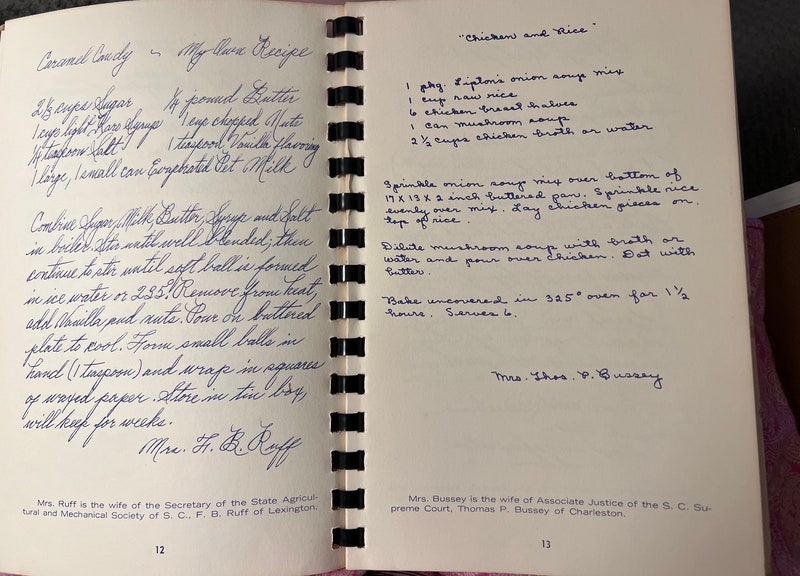 Caramel Candy ~ My Own Recipe
2⅓ cups Sugar ¼ pound Butter
1 cup light Karo Syrup 1 cup chopped Nuts
¼ teaspoon Salt 1 teaspoon Vanilla flavoring
1 large, 1 small can Evaporated Pet Milk
Combine Sugar, Milk, Butter, Syrup and Salt
in boiler. Stir until well blended; then
continue to stir until soft ball is formed
in ice water or 235°. Remove from heat,
add Vanilla and nuts. Pour on buttered
plate to cool. Form small balls in
hand (1 teaspoon) and wrap in squares
of waxed paper. Store in tin box,
will keep for weeks.
Mrs. F. B. Ruff
Mrs. Ruff is the wife of the Secretary of the State Agricul-
tural and Mechanical Society of S. C., F. B. Ruff of Lexington.
12
"Chicken and Rice"
1 pkg. Lipton's onion soup mix
1 cup raw rice
6 chicken breast halves
1 can mushroom soup
2½ cups chicken broth or water
Sprinkle onion soup mix over bottom of
17 x 13 x 2 inch buttered pan. Sprinkle rice
evenly over mix. Lay chicken pieces on
top of rice.
Dilute mushroom soup with broth or
water and pour over chicken. Dot with
butter.
Bake uncovered in 325° oven for 1½
hours. Serves 6.
Mrs. Thos. P. Bussey
Mrs. Bussey is the wife of Associate Justice of the S. C. Su-
preme Court, Thomas P. Bussey of Charleston.
13